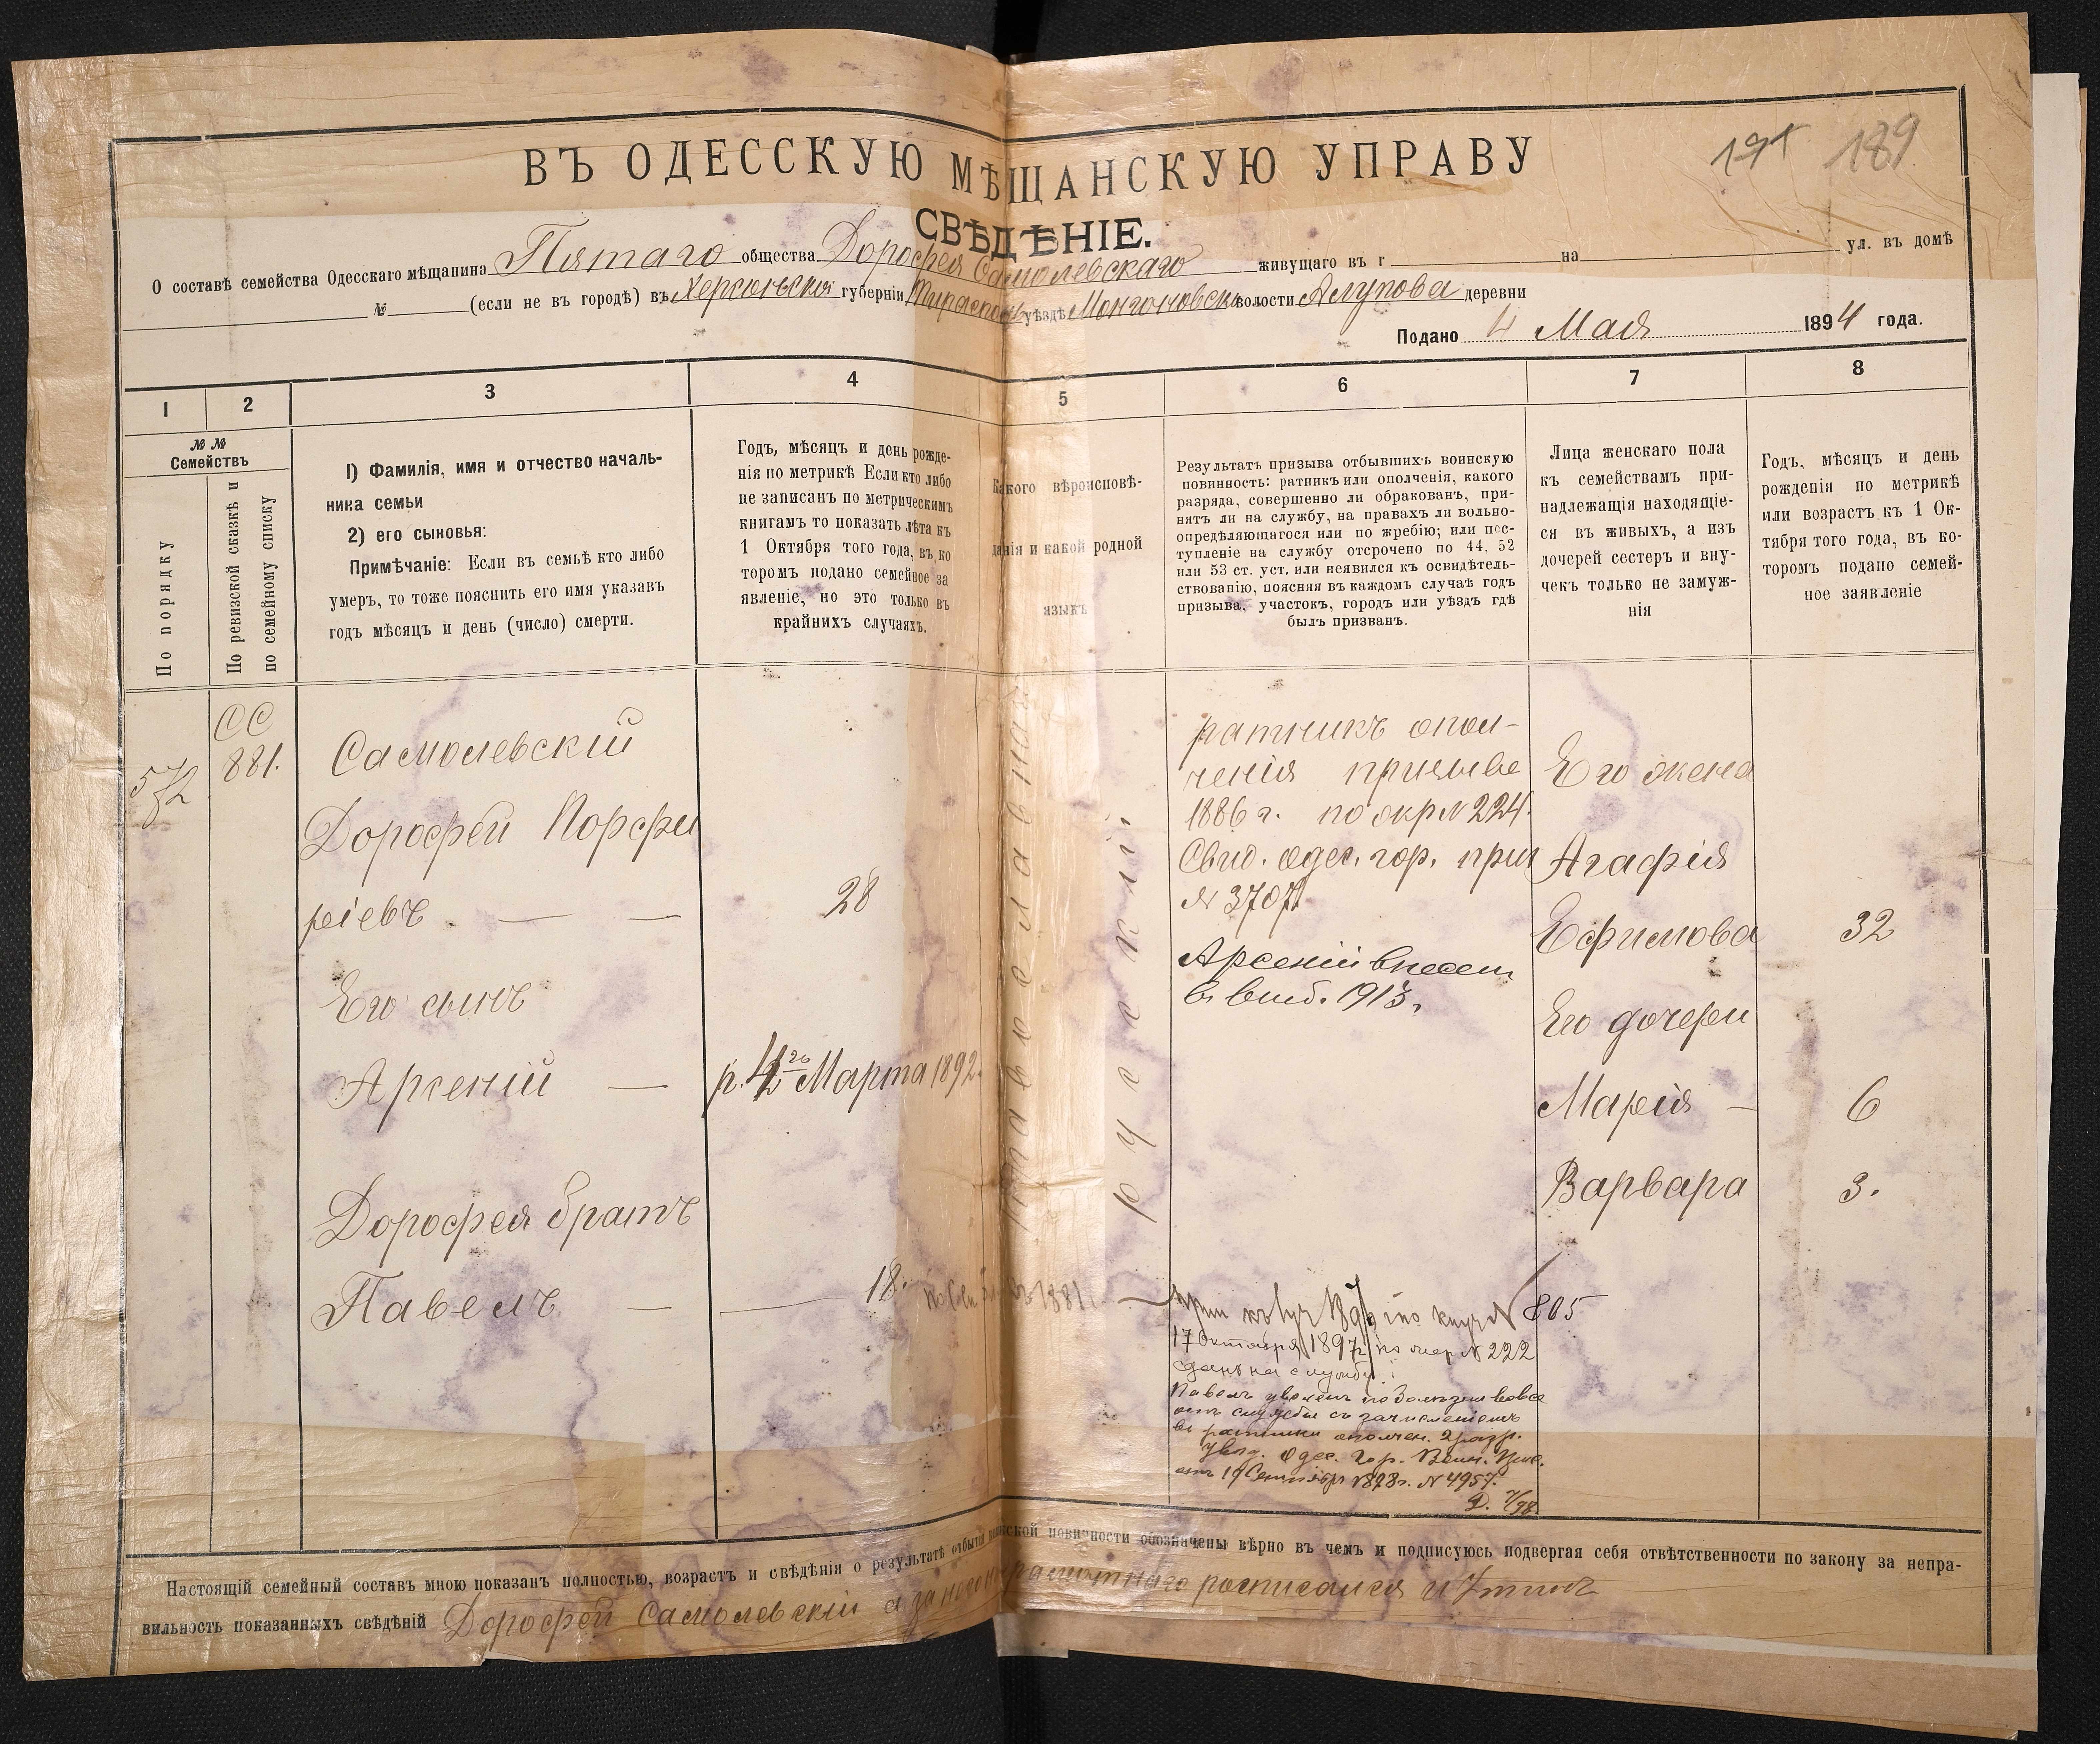 191 189
ВЪ ОДЕССКУЮ МѢЩАНСКУЮ УПРАВУ
СВѢДѢНІЕ.
О составѣ семейства Одесскаго мѣщанина Пятаго общества Дорофея Самолевскаго живущаго въ г на ул. въ домѣ
№ (если не въ городѣ) въ Херсонской губерніи Тираспол уѣздѣ волости деревни
Подано 4 Мая 1894 года.
1 2 3 4 5 6 7 8
№ № Семействъ
По порядку
По ревизской сказкѣ и
по семейному списку
1) Фамилія, имя и отчество началь-
ника семьи
2) его сыновья:
Примѣчаніе: Если въ семьѣ кто либо
умеръ, то тоже пояснить его имя указавъ
годъ мѣсяцъ и день (число) смерти.
Годъ, мѣсяцъ и день рожде-
нія по метрикѣ Если кто либо
не записанъ по метрическимъ
книгамъ то показать лѣта къ
1 Октября того года, въ ко
торомъ подано семейное за
явленіе, но это только въ
крайнихъ случаяхъ.
Какого вѣроисповѣ-
данія и какой родной
языкъ
Результатъ призыва отбывшихъ воинскую
повинность: ратникъ или ополченія, какого
разряда, совершенно ли обракованъ, при-
нятъ ли на службу, на правахъ ли вольно-
опредѣляющагося или по жребію; или пос-
тупленіе на службу отсрочено по 44, 52
или 53 ст. уст. или неявился къ освидѣтель-
ствованію, поясняя въ каждомъ случаѣ годъ
призыва, участокъ, городъ или уѣздъ гдѣ
былъ призванъ.
Лица женскаго пола
къ семействамъ при-
надлежащія находящіе-
ся въ живыхъ, а изъ
дочерей сестеръ и вну-
чекъ только не замуж-
нія
Годъ, мѣсяцъ и день
рожденія по метрикѣ
или возрастъ къ 1 Ок-
тября того года, въ ко-
торомъ подано семей-
ное заявленіе
572
СС
881.
Самолевскій
Дорофей Порфи
ріевъ
28
Его сынъ
Арсеній
р. 12го Марта 1892.
Дорофея братъ
Павелъ
18.
православная
русскій
ратникъ опол-
ченія призыва
1886 г. по окр № 224.
Свид. одес. гор. прис
№ 3707
Арсеній внесен
в 1913.
805
17 Октября 1897 г. № 222
сданъ на службу
Павелъ уволенъ по болѣзни вовсе
отъ службы съ зачисленіемъ
въ ратники ополчен. 2 разр.
Увѣд. Одес. Гор. Воин. Прис.
отъ 19 Сентября 1898 г. № 4957.
Его жена
Агафія
Ефимова
32
Его дочери
Марія
6
Варвара
3.
Настоящій семейный составъ мною показанъ полностью, возрастъ и свѣдѣнія о результатѣ отбытія воинской повинности обозначены вѣрно въ чемъ и подписуюсь подвергая себя отвѣтственности по закону за непра-
вильность показанныхъ свѣдѣній Дорофей Самолевскій а за него неграмотнаго росписался